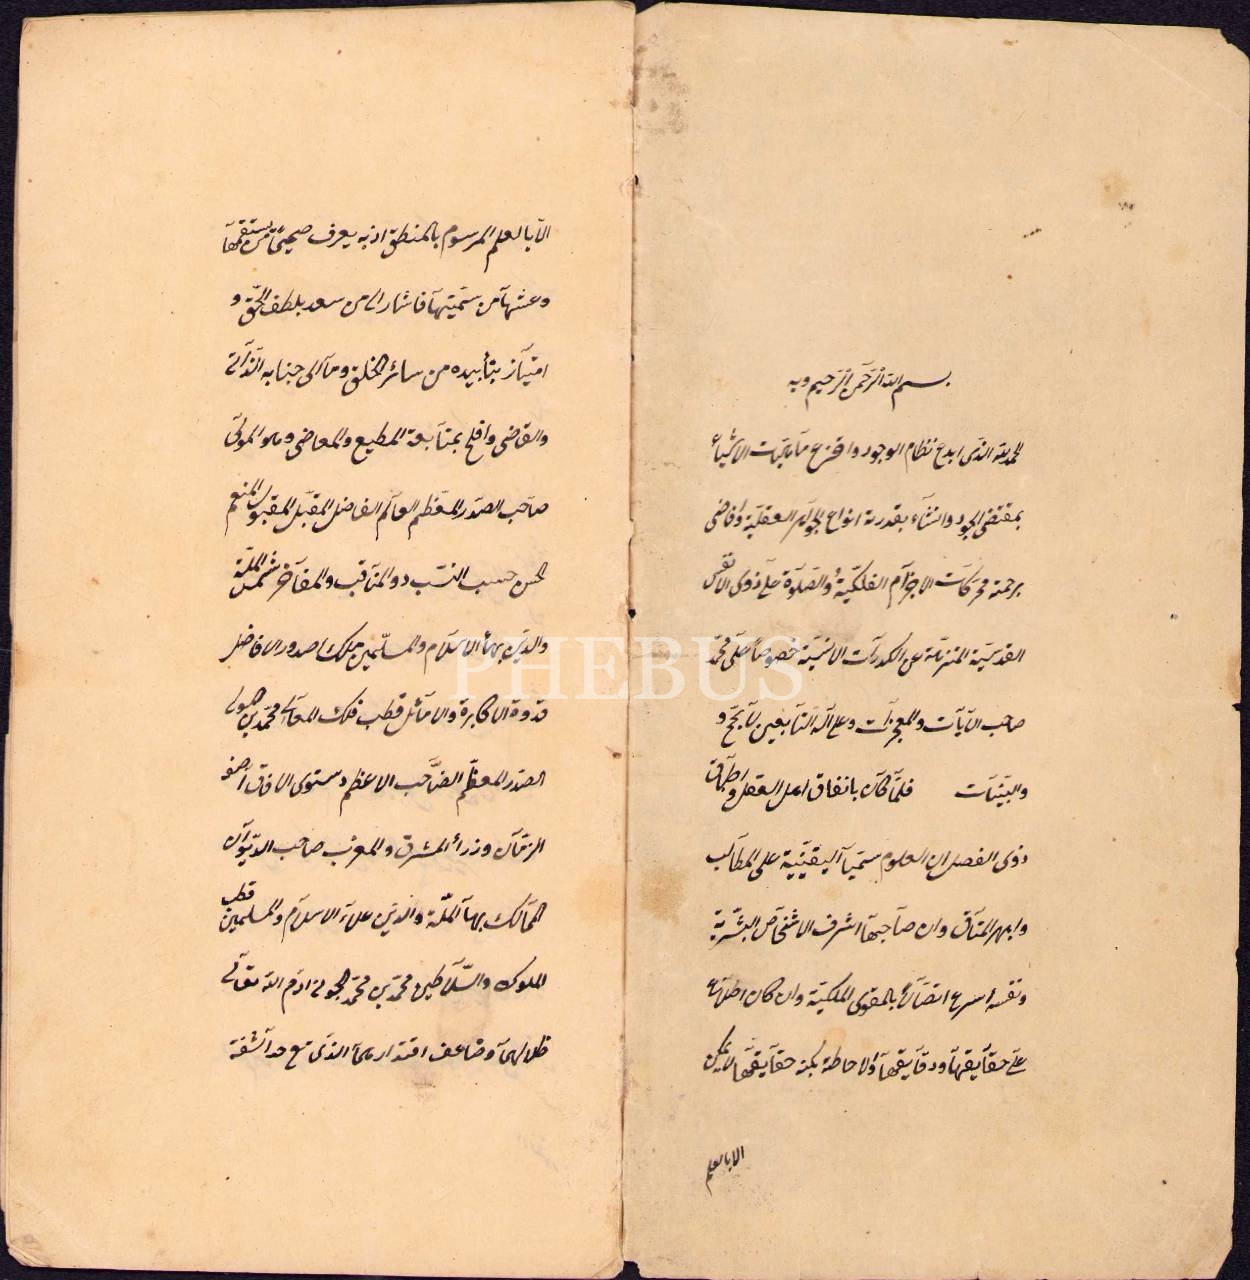 بسم الله الرحمن الرحيم وبه
الحمد لله الذى ابدع نظام الوجود واخترع ماهيات الاشياء
بمقتضى الجود وانشاء بقدرته انواع الجواهر العقلية وافاض
برحمته محركات الاجرام الفلكية والصلوة على ذوى الانفس
القدسية المنزهة عن الكدرات الانسية خصوصا على محمد
صاحب الآيات والمعجزات وعلى آله التابعين للحجج و
والبينات فلما كان باتفاق اهل العقل واطباق
ذوى الفضل ان العلوم سميا اليقينية على المطالب
وابهر المناقب وان صاحبها اشرف الاشخاص البشرية
ونفسه اسرع اتصالا بالقوى الملكية وان كان اطلاع
على حقايقها ودقايقها والاحاطة بكنه حقايقها لا يمكن
الا بالعلم
الا بالعلم المرسوم بالمنطق اذ به يعرف صحيحها من سقيمها
وغثها من سمينها فاشار الى من سعد بلطف الحق و
امتياز بتأييده من سائر الخلق ومال الى جنابه الدانى
والقاصى وافلح بمتابعة المطيع والعاصى وهو المولى
صاحب الصدر المعظم العالم الفاضل المقبل المقبول المنعم
المحسن حسيب النسيب ذو المناقب والمفاخر شمس الملة
والدين بهاء الاسلام والمسلمين ملك اصدور الافاضل
قدوة الاكابرة والاماثل قطب فلك المعالى محمد بن المولى
الصدر المعظم الصاحب الاعظم دستوى الافاق آصف
الزمان وزراء المشرق والمغرب صاحب الديوان
الممالك بهاء الملة والدين علاء الاسلام والمسلمين قطب
الملوك والسلاطين محمد بن محمد الجونى ادام الله تعالى
ظلالهما وضاعف اقتدارهما الذى مع حداثة